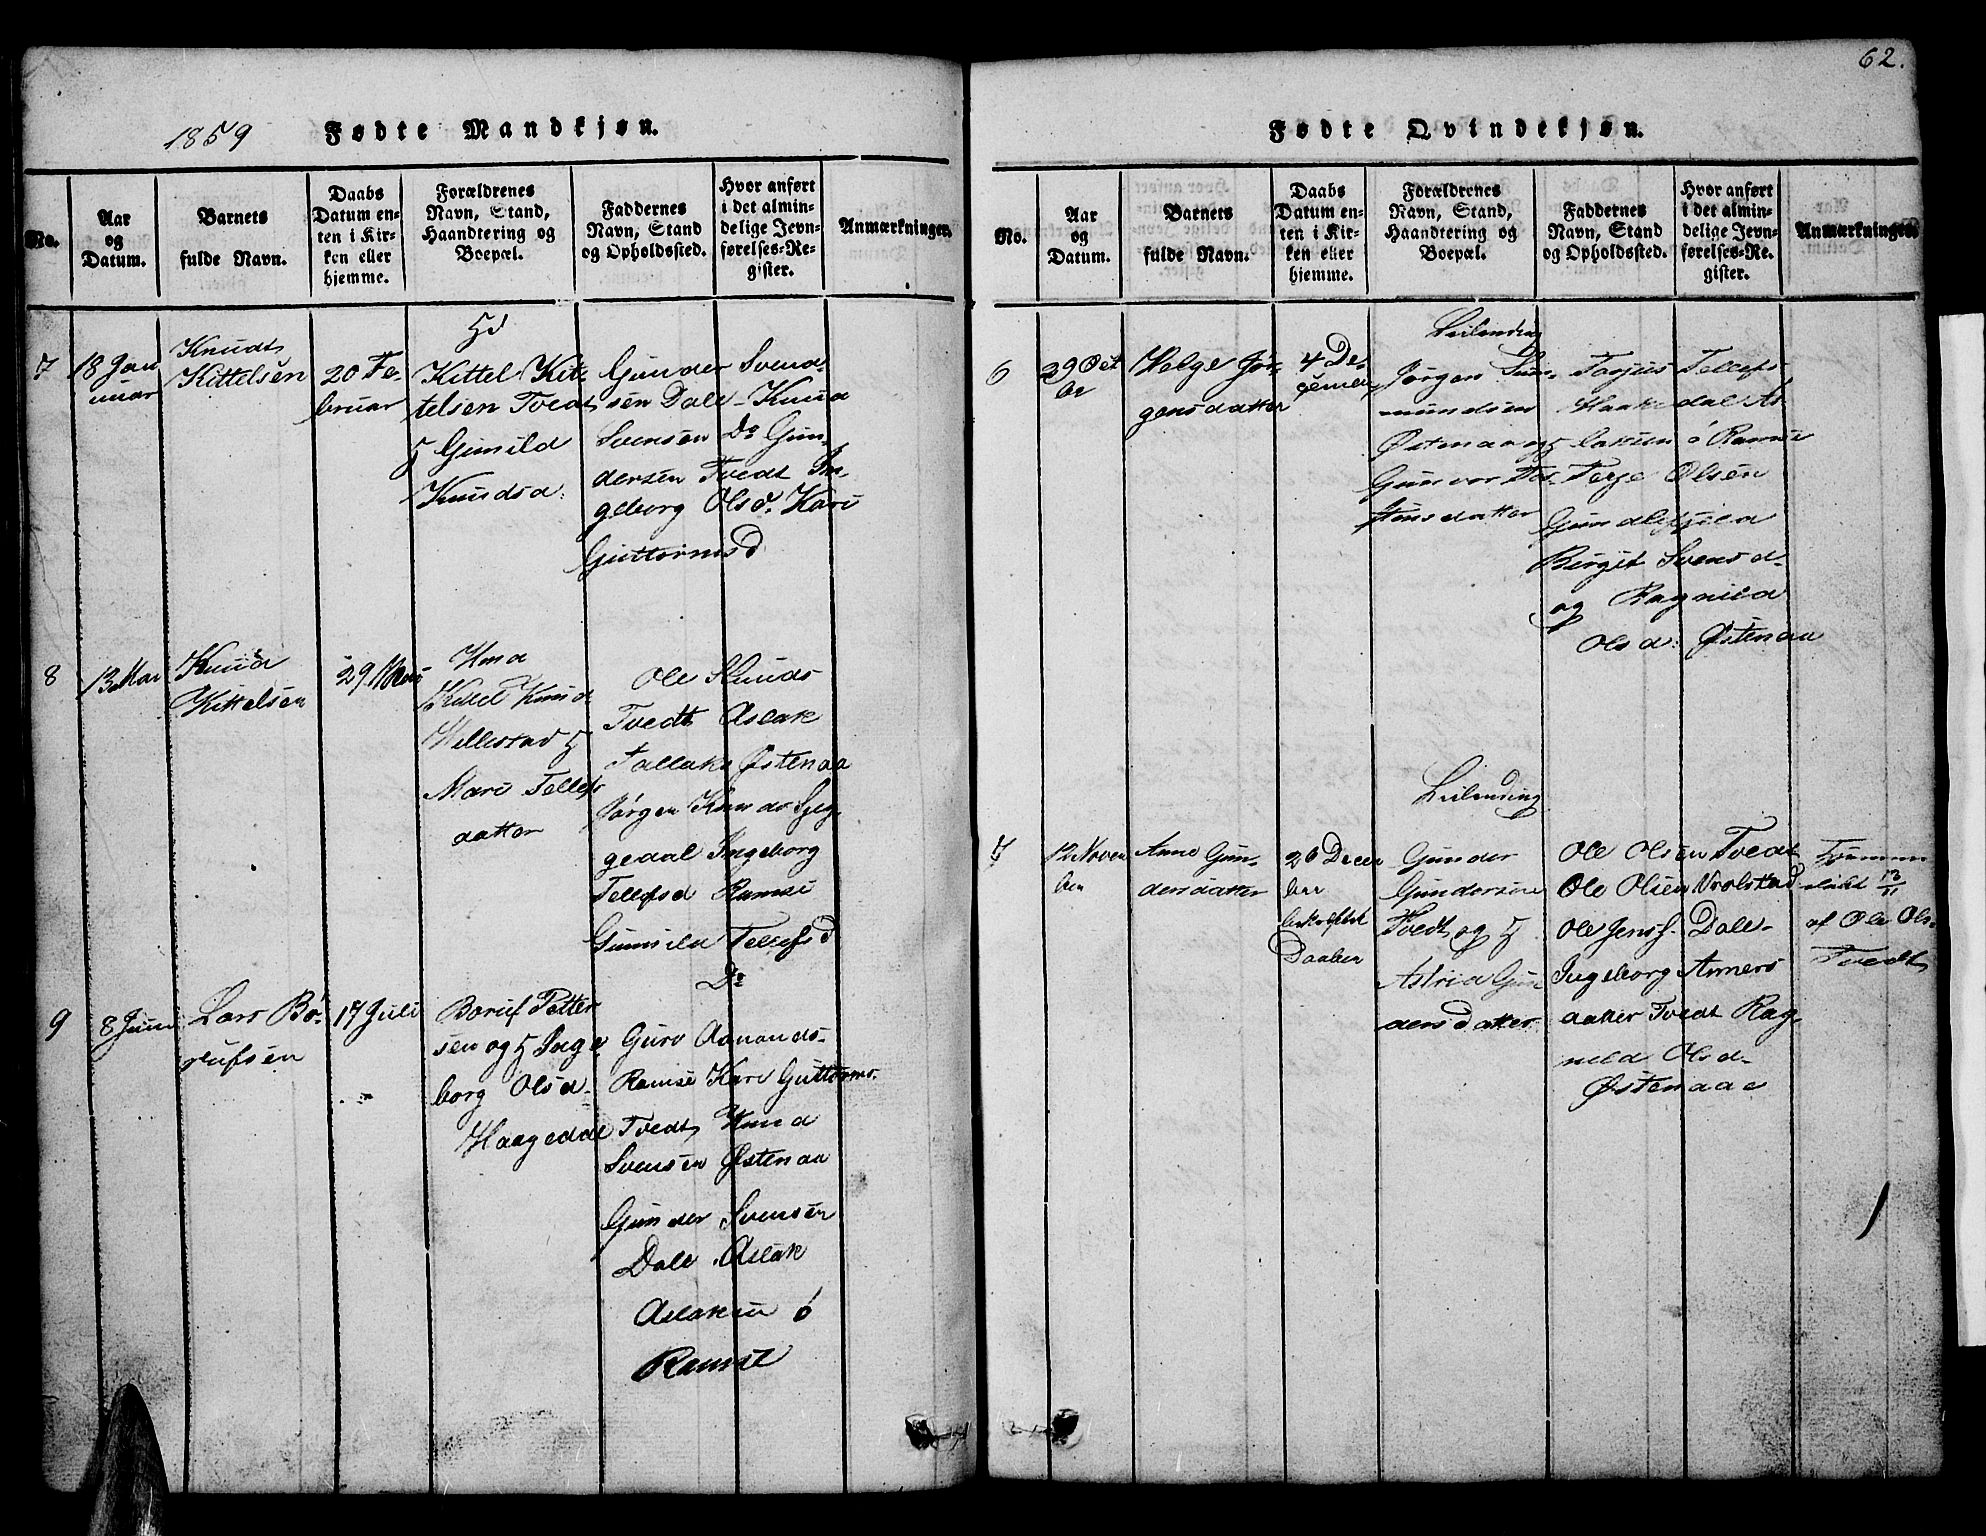 1859 Fødte Mandkjøn.
No.
Aar
og
Datum.
Barnets
fulde Navn.
Daabs
Datum en-
ten i Kir-
ken eller
hjemme.
Forældrenes
Navn, Stand,
Haandtering og
Boepæl.
Faddernes
Navn, Stand
og Opholdssted.
Hvor anført
i det almin-
delige Jevn-
førelses-Re-
gister.
Anmærkninger.
7
18 Jan
uuar
Knudt
Kittelsen
20 Fe-
bruar
Kittel Kit-
telsen Tvedt
Gunild
Knudsd:
Gunder Svend-
sen Dale - Knud
Svensen Do Gun-
dersen Tvedt In-
geborg Olsd. Kari
Guttormsd
8
13 Mar
Knud
Kittelsen
29 Mai
Hmd
Kittel Knud
Hellestad
Mari Tellefs
datter
Ole Knuds
Tvedt Aslak
Tallaks Østenaa
Jørgen Knuds Syg
gedal Ingeborg
Tellefsd Ramse
Gunnild Tellefsd
Do
9
8 Juni
Lars Bø-
rufsen
17 Juli
Boruf Petter
sen og Inge
borg Olsd.
Haagedal
Guro Aanonds-
Ramse Kari Guttorms.
Tvedt Knud
Svensen Østenaa
Gunder Svensen
Dale Aslak
Aslaksen ó
Ramse
62.
Fødte Qvindekjøn.
No.
Aar
og
Datum.
Barnets
fulde Navn.
Daabs
Datum en-
ten i Kir-
ken eller
hjemme.
Forældrenes
Navn, Stand,
Haandtering og
Boepæl.
Faddernes
Navn, Stand
og Opholdssted.
Hvor anført
i det almin-
delige Jevn-
førelses-Re-
gister.
Anmærkninger.
6
29 Oct
br
Helge Jør-
gensdatter
4 De-
cember
Leilending
Jørgen
mundsen
Østenaa og
Gunvor Tos-
stensdatter
Tarjus Tellefs-
Haake dal As-
laksen ó Ramse
Terje Olsen
Birgit Svensd-
og Ragnild
Olsd: Østenaa
7
12 Novem
ber
Anne Gun-
dersdatter
26 Decem
ber
Daaben
Leilending
Gunder
Gundersen
Tvedt og
Astrid Gun
dersdatter
Ole Olsen Tvedt
Ole Olsen Vrolstad
Ole Jensf. Dale-
Ingeborg Anners
datter Tvedt Rag-
nild Olsd-
Østenaae
af Ole Ols-
Tvedt